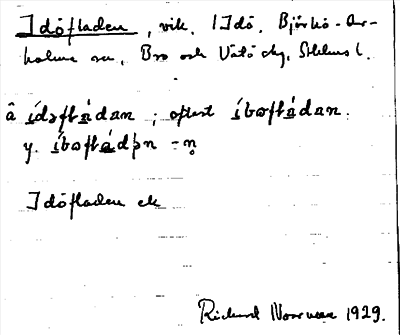 Idöfladen, vik, I Idö, Björkö-Ar-
holma sn, Bro och Vätö skg, Sthlms l.
å ídəflàdan; oftast íbəflàdan.
y. íbəflàdþn -n̥
Idöfladen ek
Richard 1929.